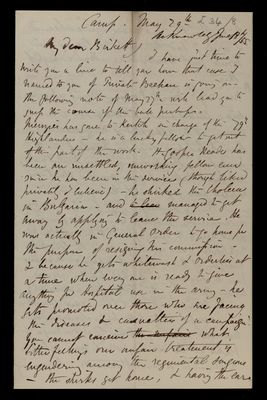 Camp. May 29th
Acknowledged June 18th/55
My dear Birkett,
I have just time to
write you a line to tell you how that case I
named to you of Private Beehan is going on -
the following note of May 27th will lead you to
the course of the
Menzies has gone to Kertch in charge of the 79th
Highlanders - he is a lucky fellow to get out
of this part of the work. Mr Cooper Meades has
been an unsettled, unworking fellow ever
since he has been in the service, (though liked
privately I believe) - he shirked the Cholera
in Bulgaria - and managed to get
away by applying to leave the service. He
was actually in General Order to go home for
the purpose of resigning his commission -
& because he gets whitewashed & orderlies at
a time when every one is ready to give
anything for Hospital use in the army - he
gets promoted over those who are facing
the diseases & casualties of a campaign
You cannot conceive the what
bitter feelings our unfair treatment is
engendering among the regimental surgeons
- the shirks get home, & having the ears